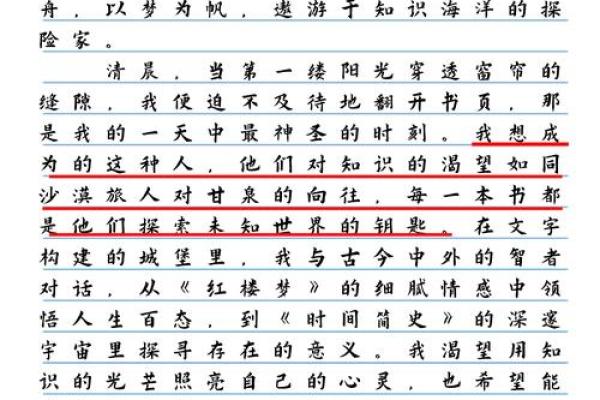 舟，以梦为帆，遨游于知识海洋的探
险家。
清晨，当第一缕阳光穿透窗帘的
缝隙，我便迫不及待地翻开书页，那
是我的一天中最神圣的时刻。我想成
为的这种人，他们对知识的渴望如同
沙漠旅人对甘泉的向往，每一本书都
是他们探索未知世界的钥匙。在文字
构建的城堡里，我与古今中外的智者
对话，从《红楼梦》的细腻情感中领
悟人生百态，到《时间简史》的深邃
宇宙里探寻存在的意义。我渴望用知
识的光芒照亮自己的心灵，也希望能